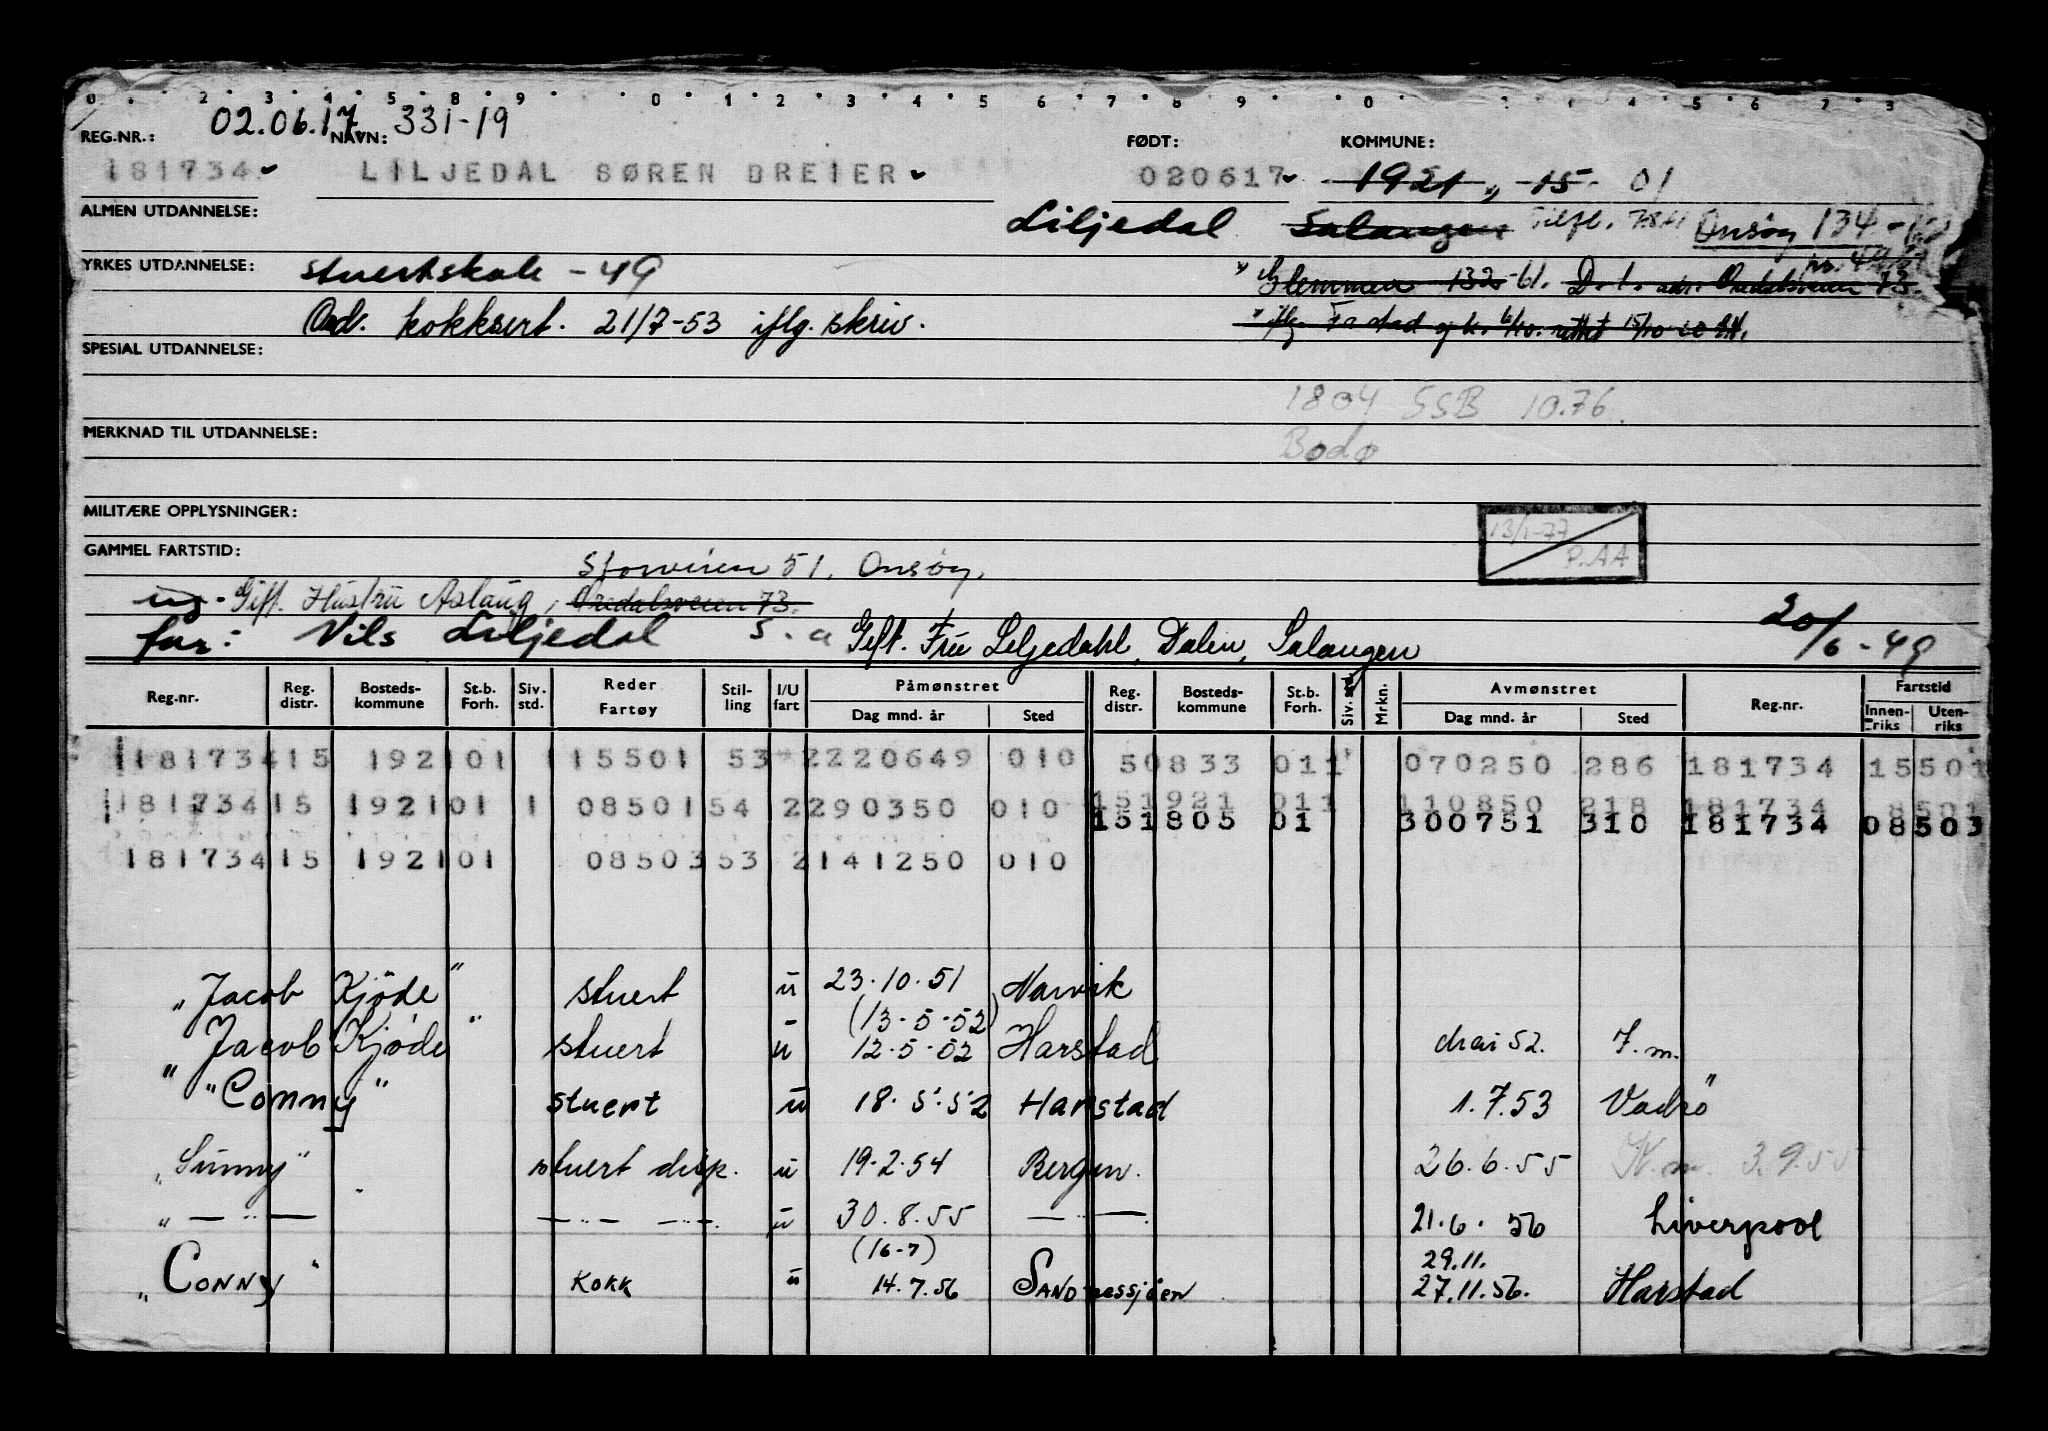 0 . . 2 . 3 . 4 . 5 . 8 . 9 . . 0 . 1 . 2 . 3 . 4 . 5 6 . 7 . 8 . 9 . . 0 . . . 4 . 5 . 6 . 2 . 3
02.06.17 331-19
REG.NR.: NAVN: FØDT: KOMMUNE:
181734 LILJEDAL SØREN DREIER 020617 1921 15 01
ALMEN UTDANNELSE: Liljedal Salangen Tilfl. Onsøy 134
YRKES UTDANNELSE: stuertskole - 49 Glemmen 132-61. D.t. adr. Oredalsveien 73.
Ord. kokksert. 21/7-53 iflg. skriv.
SPESIAL UTDANNELSE:
1804 SSB 10.76.
MERKNAD TIL UTDANNELSE: Bodø
MILITÆRE OPPLYSNINGER:
13/1-77 P.AA
GAMMEL FARTSTID: Storveien 51, Onsøy.
ug. Gift. Hustru Aslaug, Oredalsveien 73.
far: Nils Liljedal s. a Gift. Fru Liljedahl, Dalen, Salangen 20/6-49
Reg.nr. Reg. distr. Bosteds-kommune St.b. Forh. Siv. std. Reder Fartøy Stil-ling I/U fart Påmønstret Dag mnd. år Sted Reg. distr. Bosteds-kommune St.b. Forh. Siv. std Mrkn. Avmønstret Dag mnd. år Sted Reg.nr. Fartstid Innen-riks Uten-riks
181734 15 1921 01 1 15501 53 2 220649 010 50833 011 070250 286 181734 15501
181734 15 1921 01 1 08501 54 2 290350 010 151921 011 110850 218 181734 8501
151805 01 300751 310 181734 08503
181734 15 1921 01 08503 53 2 141250 010
"Jacob Kjøde" stuert u 23.10.51 Narvik
(13-5-52)
"Jacob Kjøde" stuert u 12-5-52 Harstad mai 52. F.m.
"Conny" stuert u 18.5.52 Harstad 1.7.53 Vadsø
"Sunny" stuert disp. u 19.2.54 Bergen. 26.6.55 3.9.55
" — " — — " — — " —. u 30.8.55 — " — 21.6.56 Liverpool
(16-7) 29.11.
"Conny" Kokk u 14.7.56 Sandnessjøen 27.11.56. Harstad